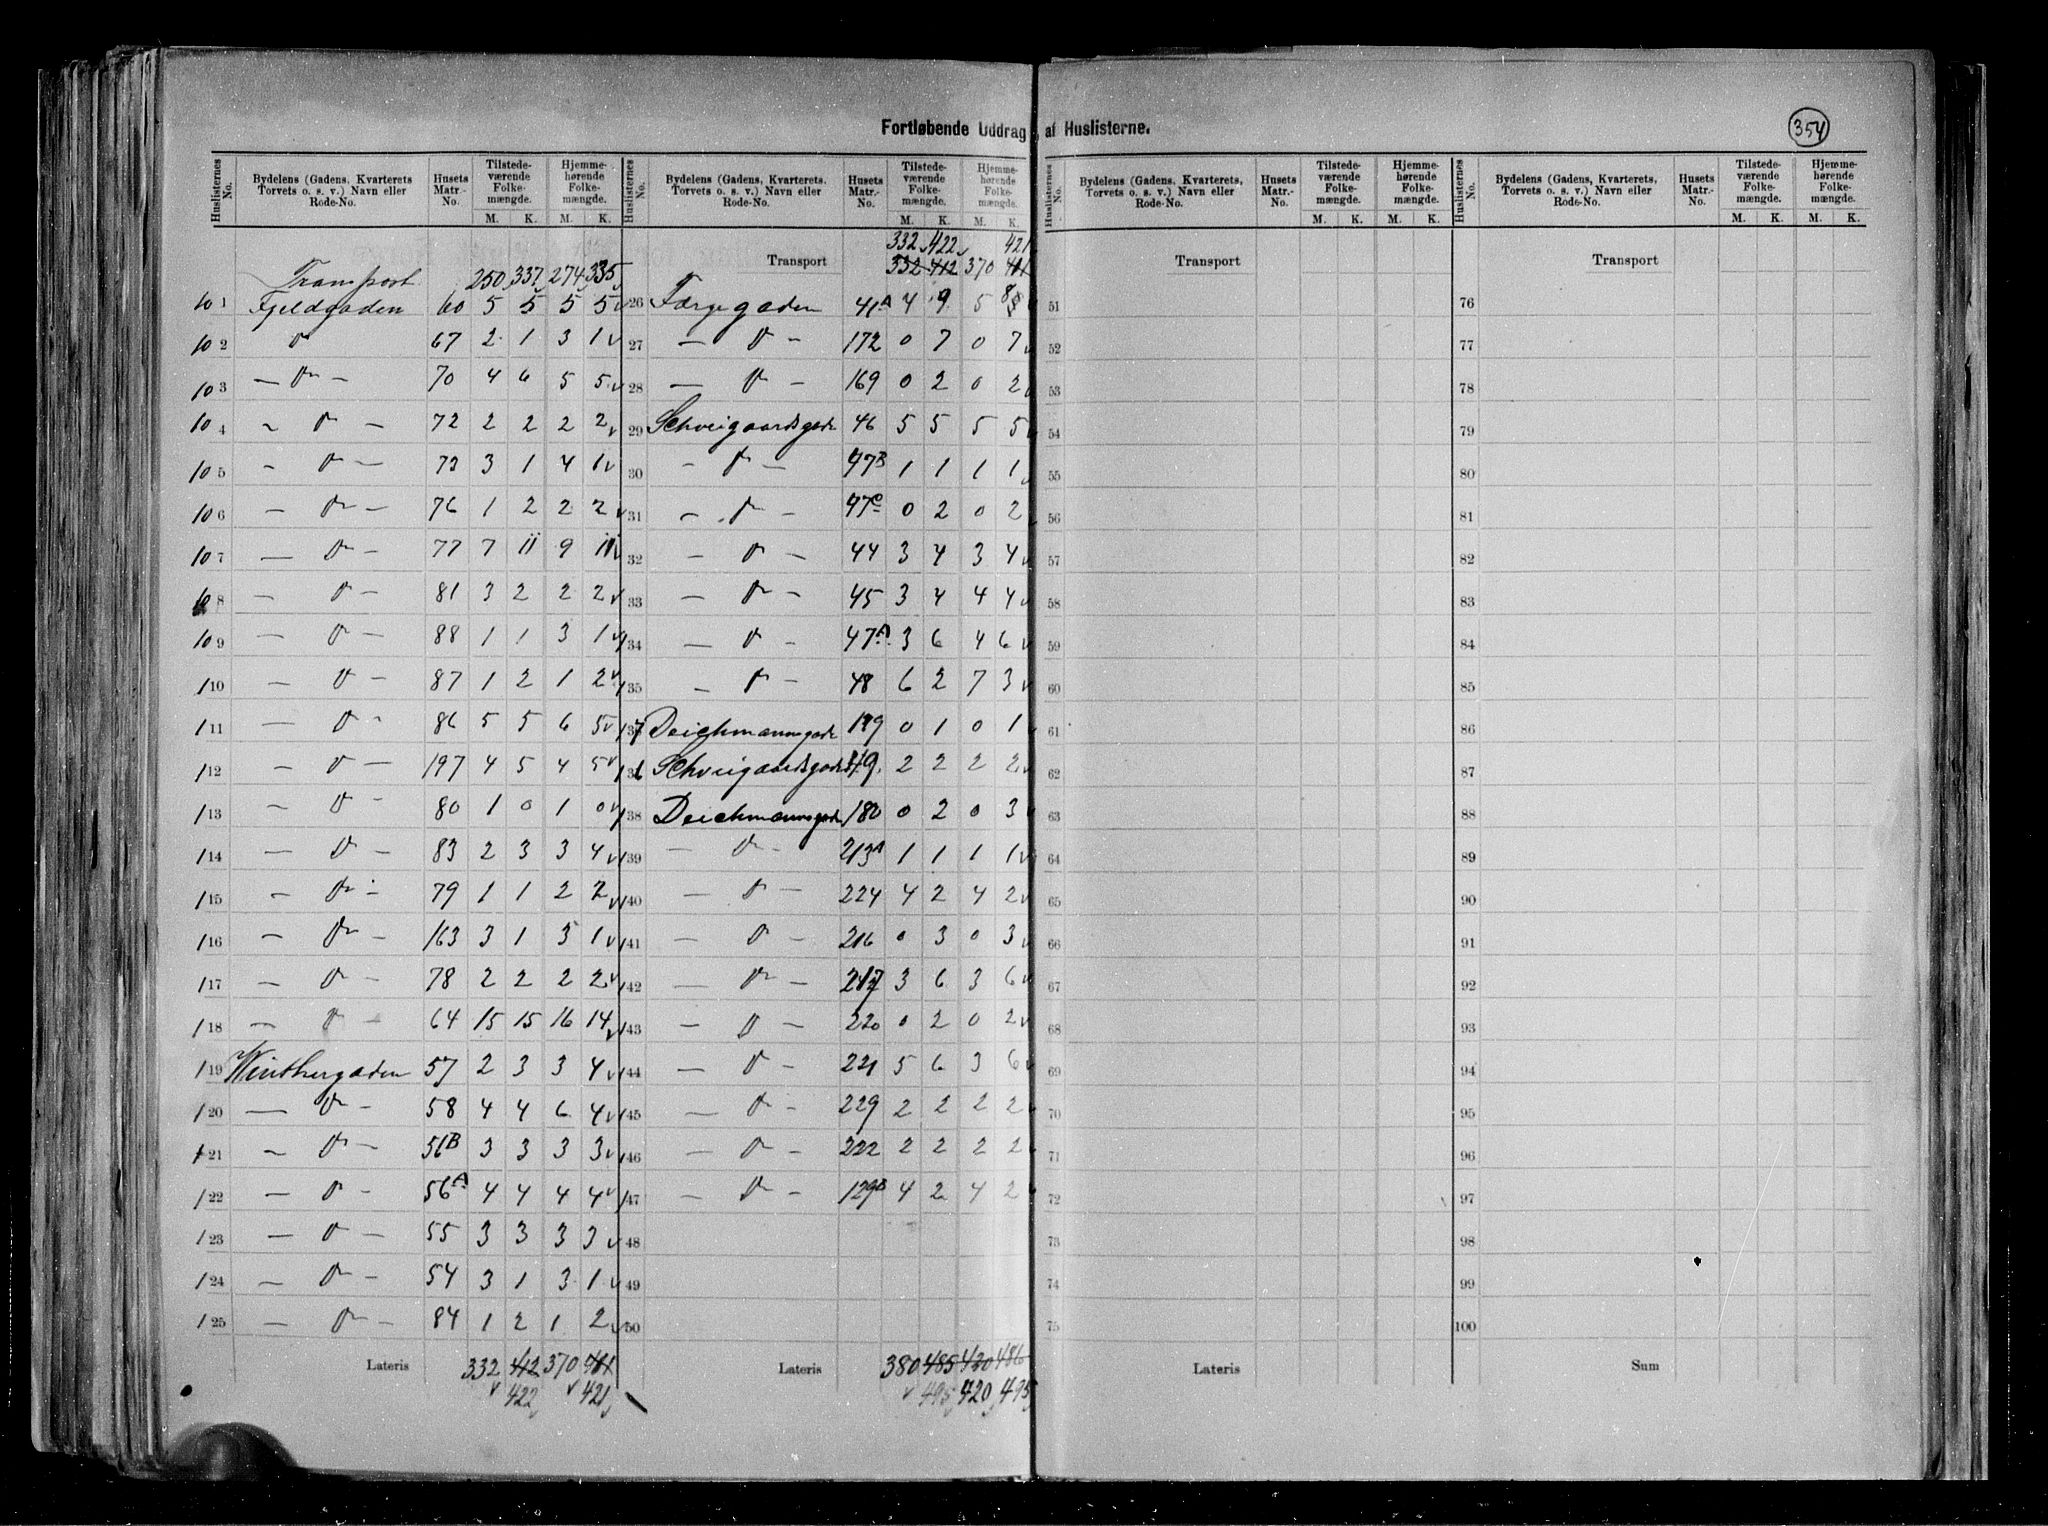 Fortløbende Uddrag af Huslisterne.
354
Huslisternes No. Bydelens (Gadens, Kvarterets, Torvets o. s. v.) Navn eller Rode-No. Husets Matr.-No. Tilstedeværende Folkemængde. M. K. Hjemmehørende Folkemængde. M. K.
Transport 250 337 274 335
10 1 Fjeldgaden 60 5 5 5 5
10 2 " 67 2 1 3 1
10 3 — " — 70 4 6 5 5
10 4 — " — 72 2 2 2 2
10 5 — " — 73 3 1 4 1
10 6 — " — 76 1 2 2 2
10 7 — " — 77 7 11 9 11
10 8 — " — 81 3 2 2 2
10 9 — " — 88 1 1 3 1
1 10 — " — 87 1 2 1 2
1 11 — " — 86 5 5 6 5
1 12 — " — 197 4 5 4 5
1 13 — " — 80 1 0 1 0
1 14 — " — 83 2 3 3 4
1 15 — " — 79 1 1 2 2
1 16 — " — 163 3 1 3 1
1 17 — " — 78 2 2 2 2
1 18 — " — 64 15 15 16 14
1 19 Winthergaden 57 2 3 3 4
1 20 — " — 58 4 4 6 4
1 21 — " — 56B 3 3 3 3
1 22 — " — 56A 4 4 4 4
1 23 — " — 55 3 3 3 3
1 24 — " — 54 3 1 3 1
1 25 — " — 84 1 2 1 2
Lateris 332 412 370 411
422 421
Huslisternes No. Bydelens (Gadens, Kvarterets, Torvets o. s. v.) Navn eller Rode-No. Husets Matr.-No. Tilstedeværende Folkemængde. M. K. Hjemmehørende Folkemængde. M. K.
332 422 421
Transport 332 412 370 411
26 Færgegaden 41A 4 9 5 8
27 — " — 172 0 7 0 7
28 — " — 169 0 2 0 2
29 Schweigaardsgade 46 5 5 5 5
30 — " — 47B 1 1 1 1
31 — " — 47C 0 2 0 2
32 — " — 44 3 4 3 4
33 — " — 45 3 4 4 4
1 34 — " — 47A 3 6 4 6
1 35 — " — 48 6 2 7 3
137 Deichmannsgade 179 0 1 0 1
136 Schweigaardsgade 49 2 2 2 2
1 38 Deichmannsgade 180 0 2 0 3
1 39 — " — 213A 1 1 1 1
1 40 — " — 224 4 2 4 2
1 41 — " — 216 0 3 0 3
1 42 — " — 217 3 6 3 6
1 43 — " — 220 0 2 0 2
1 44 — " — 221 5 6 3 6
1 45 — " — 229 2 2 2 2
1 46 — " — 222 2 2 2 2
1 47 — " — 129B 4 2 4 2
48
49
50
Lateris 380 485 430 486
495 420 495
Huslisternes No. Bydelens (Gadens, Kvarterets, Torvets o. s. v.) Navn eller Rode-No. Husets Matr.-No. Tilstedeværende Folkemængde. M. K. Hjemmehørende Folkemængde. M. K.
Transport
51
52
53
54
55
56
57
58
59
60
61
62
63
64
65
66
67
68
69
70
71
72
73
74
75
Lateris
Huslisternes No. Bydelens (Gadens, Kvarterets, Torvets o. s. v.) Navn eller Rode-No. Husets Matr.-No. Tilstedeværende Folkemængde. M. K. Hjemmehørende Folkemængde. M. K.
Transport
76
77
78
79
80
81
82
83
84
85
86
87
88
89
90
91
92
93
94
95
96
97
98
99
100
Sum